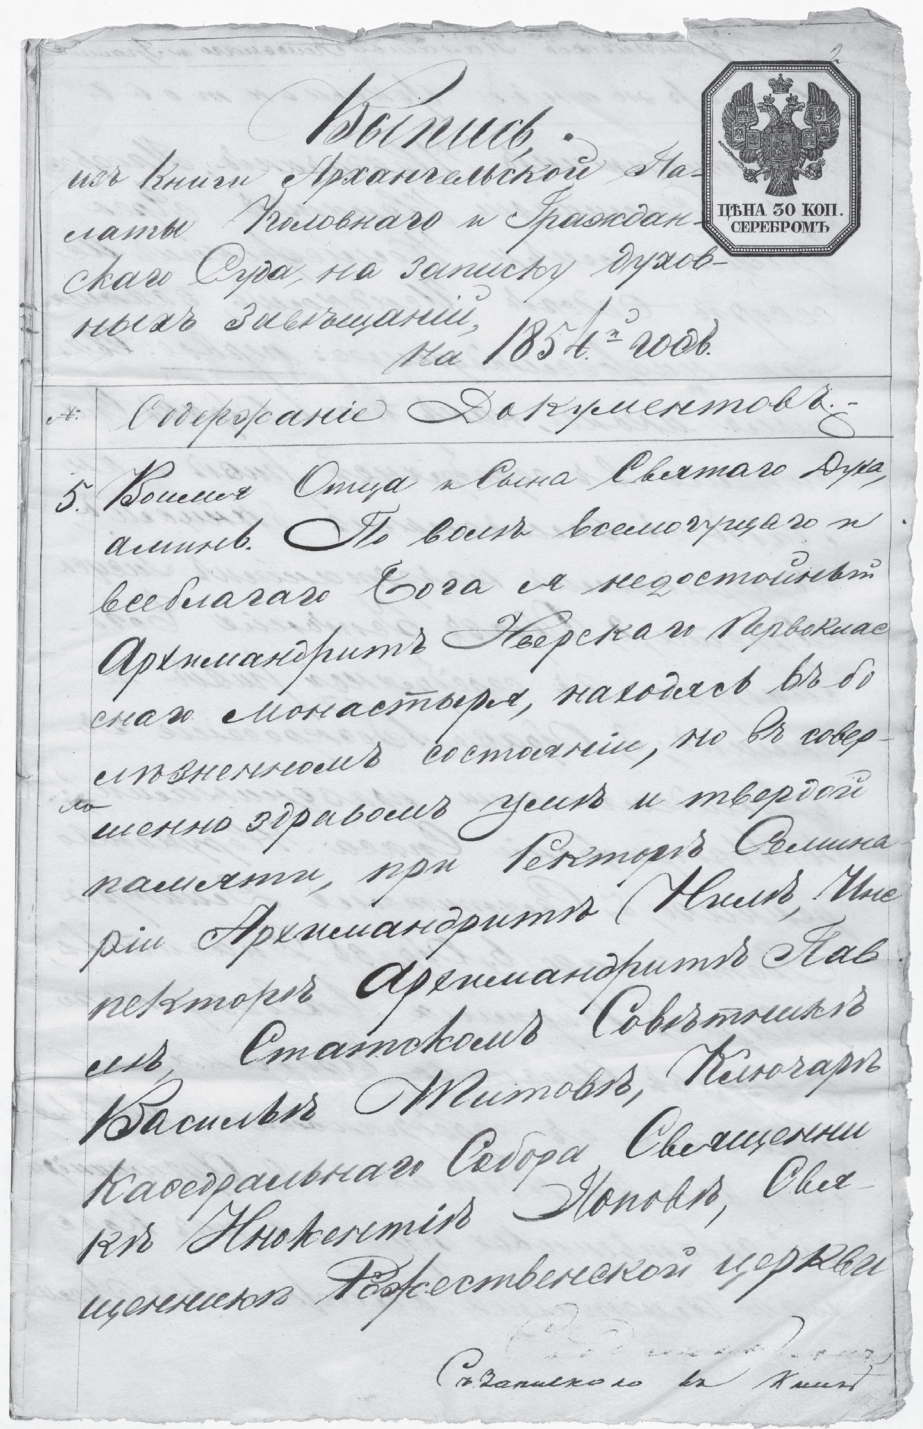 2
Выпись
ЦѢНА 30 КОП.
СЕРЕБРОМЪ
изъ Книги Архангельской Па-
латы Уголовнаго и Граждан-
скаго Суда, на записку духов-
ныхъ завѣщаній,
на 1854.й годъ.
№. Содержаніе Документовъ.-
5. Воимя Отца и Сына Святаго Духа,
аминь. По волѣ всемогущаго и
всеблагаго Бога я недостойный
Архимандритъ Иверскаго Первоклас
снаго монастыря, находясь въ бо
лѣзненномъ состояніи, но въ совер-
шенно здравомъ умѣ и твердой
памяти, при Ректорѣ Семина
ріи Архимандритѣ Нилѣ, Инс
пекторѣ Архимандритѣ Пав
лѣ, Статскомъ Совѣтникѣ
Васильѣ Титовѣ, Ключарѣ
Каѳедральнаго Собора Священни
кѣ Инокентіѣ Поповѣ, Свя-
щенникѣ Рожественской церкви
Съ запискою въ Книгѣ